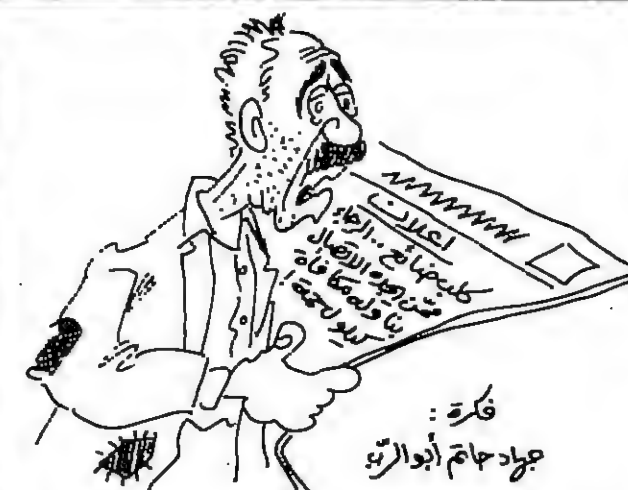 اعلان
كلب ضائع .. الرجاء
ممّن يجده الاتصال
بنا وله مكافأة
كيلو لحمة!
فكرة :
جهاد حاتم أبو الرّب